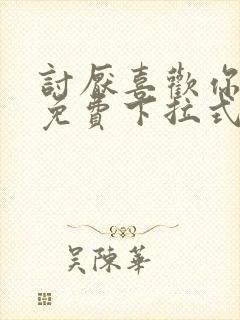 討厭喜歡你
免費下拉式
吳陳華